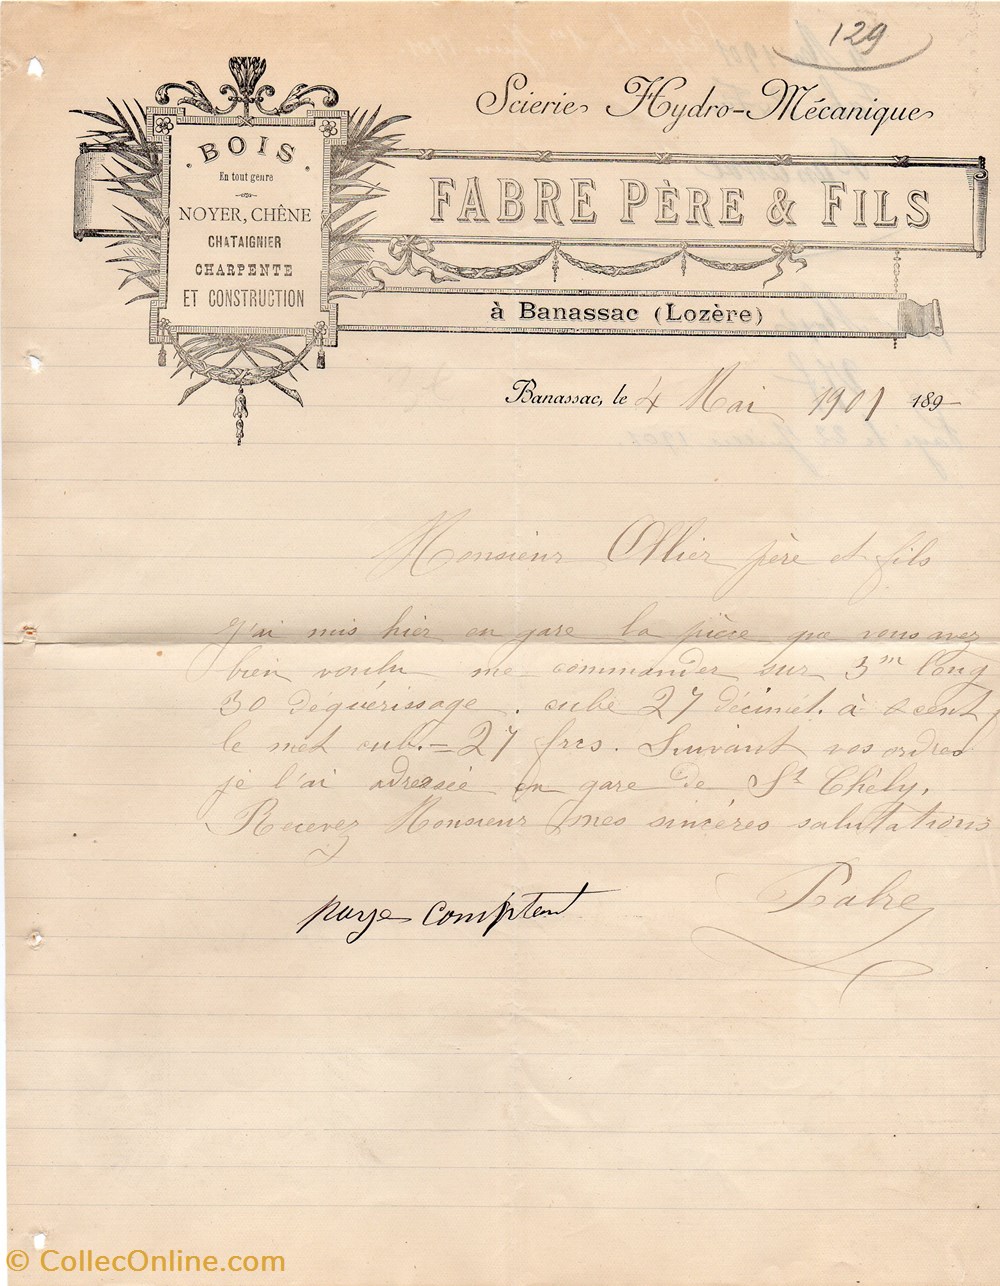 129
Scierie Hydro-Mécanique
BOIS
En tout genre
NOYER, CHÊNE
CHATAIGNIER
CHARPENTE
ET CONSTRUCTION
FABRE PÈRE & FILS
à Banassac (Lozère)
Banassac, le 4 Mai 1901 189-
Monsieur Ollier père et fils
J'ai mis hier en gare la pièce que vous avez
bien voulu me commander sur 3m long
30 déquérissage. cube 27 décimèt. à cent
le met cub. = 27 frcs. Suivant vos ordres
je l'ai adressée en gare de St Chély.
Recevez Monsieur mes sincéres salutations
Fabre
paye comptent
© CollecOnline.com